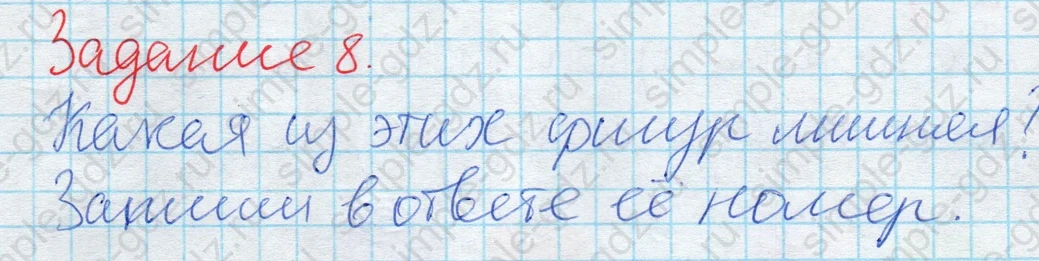 Задание 8.
Какая из этих фигур лишняя?
Запиши в ответе её номер.